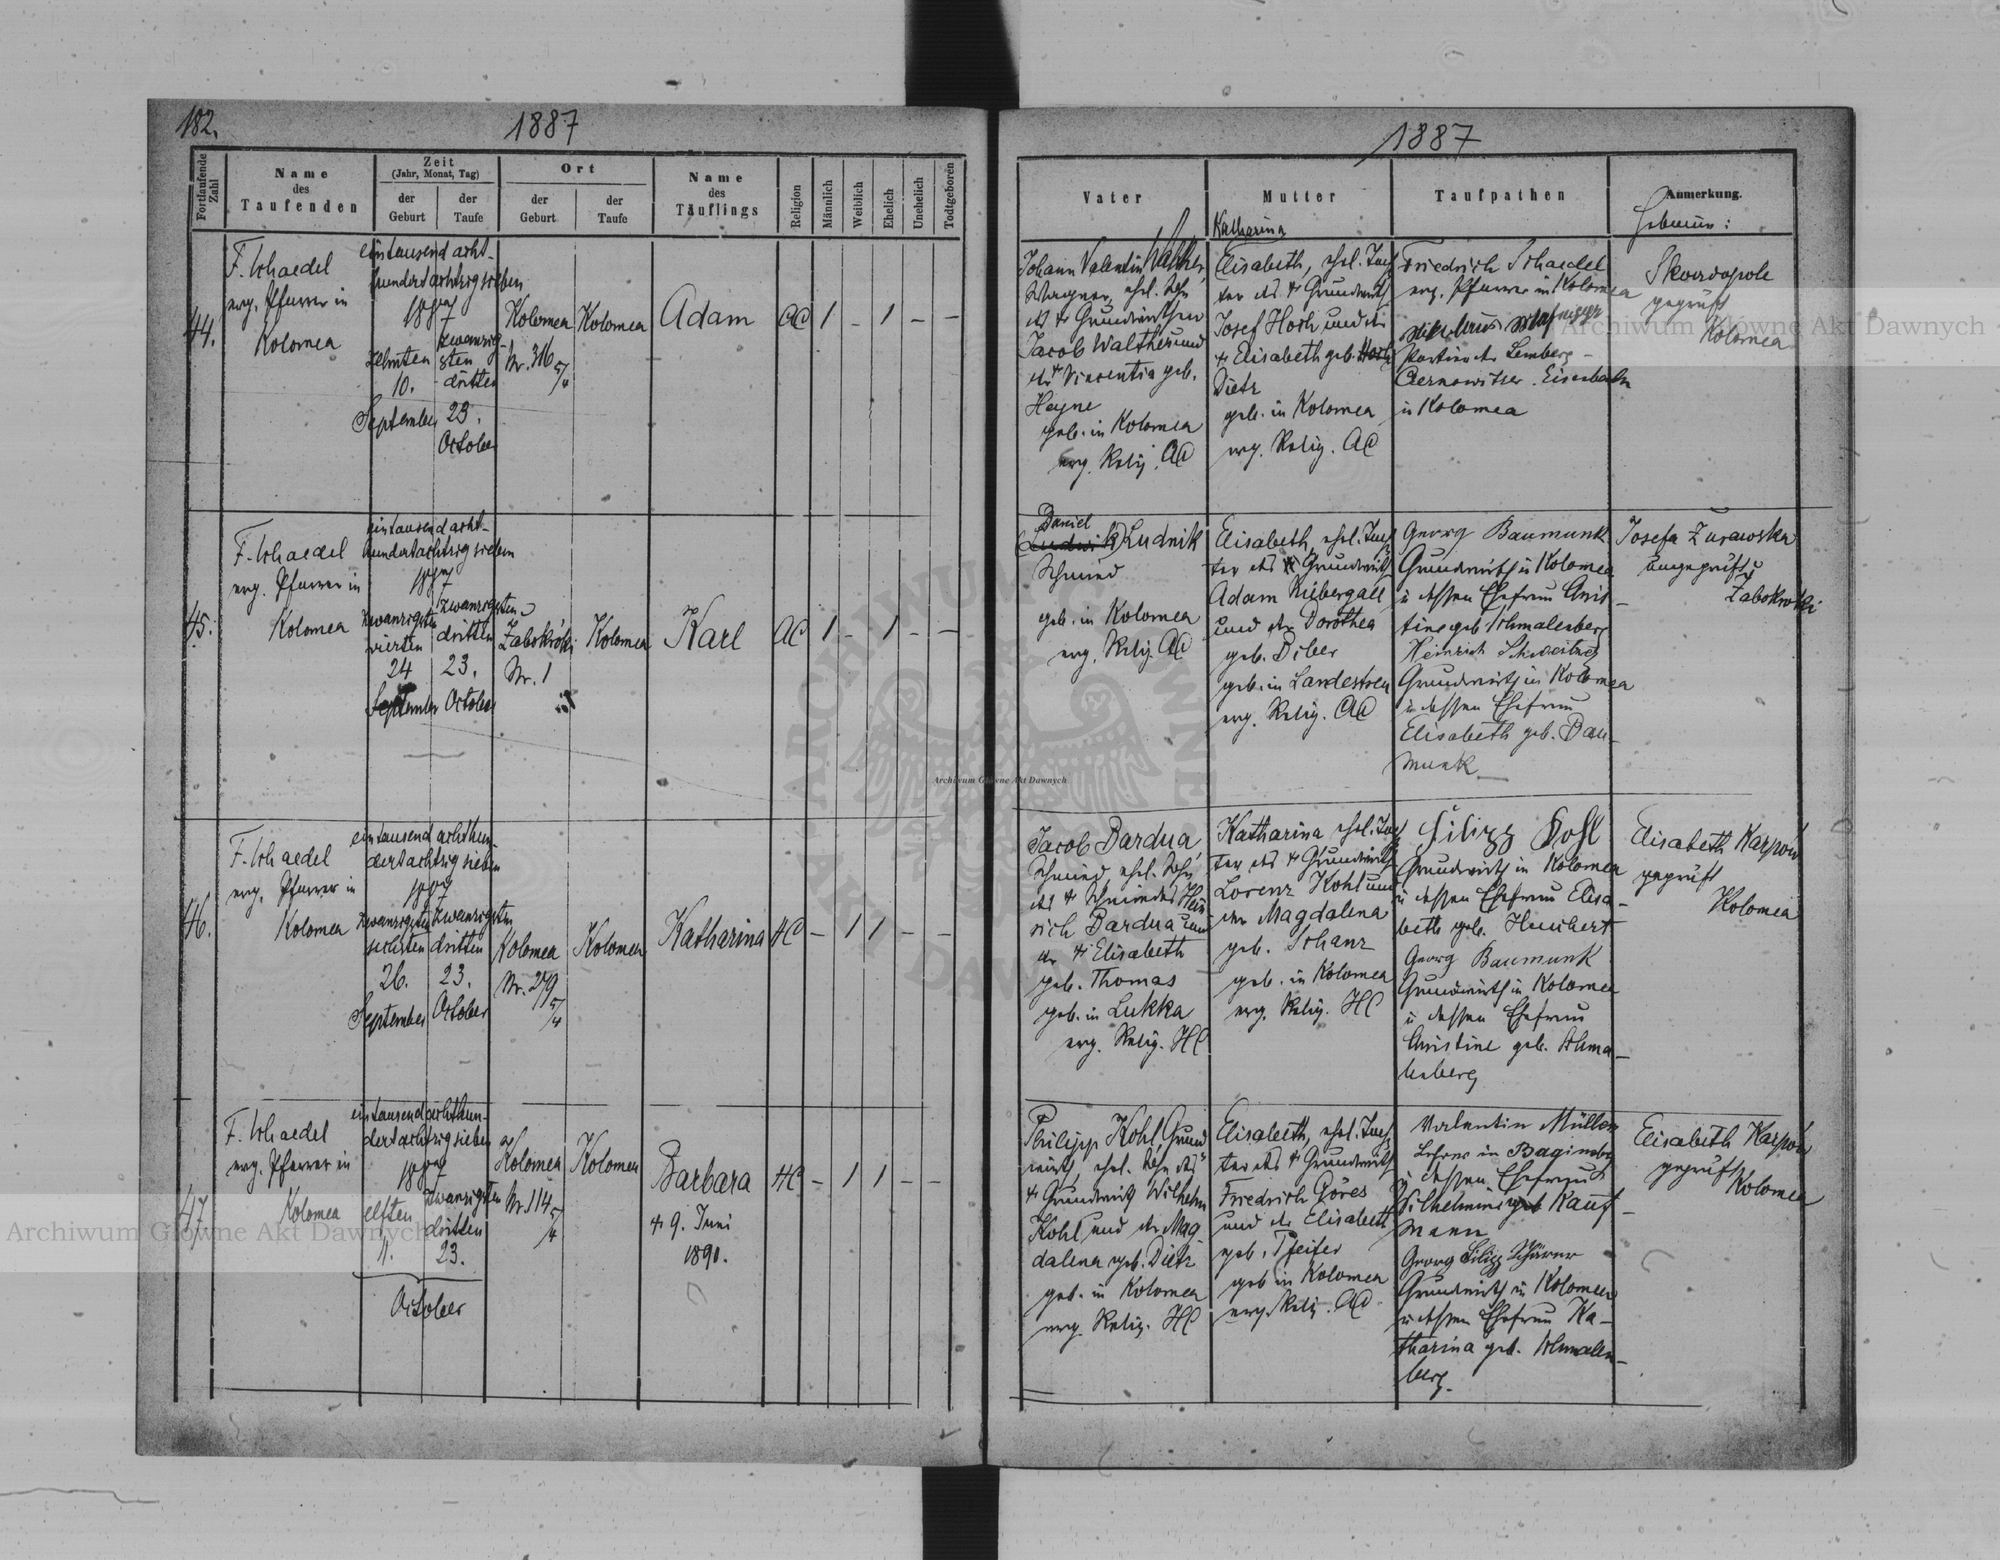 182.
1887
Fortlaufende Zahl
Name
des
Taufenden
Zeit
(Jahr, Monat, Tag)
der
Geburt
der
Taufe
Ort
der
Geburt
der
Taufe
Name
des
Täuflings
Religion
Männlich
Weiblich
Ehelich
Unehelich
Todtgeboren
44.
F. Schaedel
evg. Pfarrer in
Kolomea
eintausend acht-
hundertachtzigsieben
1887
zehnten
10.
September
zwanzig-
sten
dritten
23.
October
Kolomea
Nr. 316 5/4
Kolomea
Adam
AC
1
–
1
–
–
45.
F. Schaedel
evg. Pfarrer in
Kolomea
eintausend acht-
hundertachtzigsieben
1887
zwanzigsten
vierten
24
September
zwanzigsten
dritten
23.
October
Nr. 1
Kolomea
Karl
AC
1
–
1
–
–
46.
F. Schaedel
evg. Pfarrer in
Kolomea
eintausend achthun-
dertachtzigsieben
1887
zwanzigsten
sechsten
26.
September
zwanzigsten
dritten
23.
October
Kolomea
Nr. 279 5/4
Kolomea
Katharina
HC
–
1
1
–
–
47
F. Schaedel
evg. Pfarrer in
Kolomea
eintausendachthun-
dertachtzigsieben
1887
elften
11.
zwanzigsten
dritten
23.
October
Kolomea
Nr. 114 5/4
Kolomea
Barbara
+ 9. Juni
1890.
HC
–
1
1
–
–
1887
Vater
Mutter
Taufpathen
Anmerkung.
Hebamme:
Johann Valentin
Wagner, ehel. Sohn
des + Grundwirthen
Jacob Walther und
der + Vincentia geb.
Heyne
geb. in Kolomea
evg. Relig. AC
Katharina
Elisabeth, ehel. Toch
ter des + Grundwirth
Josef Horh und der
+ Elisabeth geb.
Dietz
geb. in Kolomea
evg. Relig. AC
Friedrich Schaedel
evg. Pfarrer in Kolomea
Nikolaus
Portier der Lemberg-
Czernowitzer Eisenbahn
in Kolomea
Skwordopole
geprüft
Kolomea
Daniel
Ludnik
Schmied
geb. in Kolomea
evg. Relig. AC
Elisabeth, ehel. Toch
ter des + Grundwirth
Adam Rübergall
und der Dorothea
geb. Diber
geb. in Landestreu
evg. Relig. AC
Georg Baumunk
Grundwirth in Kolomea
u dessen Ehefrau Chris-
tine geb Schmalenberg
Heinrich
Grundwirth in Kolomea
u dessen Ehefrau
Elisabeth geb. Bau-
munk
Josefa Żurawska
ungeprüft
Jacob Bardua
Schmied ehel. Sohn
des + Schmiedes Hein
rich Bardua und
der + Elisabeth
geb. Thomas
geb. in Lukka
evg. Relig. HC
Katharina ehel. Toch
ter des + Grundwirth
Lorenz Kohl und
der Magdalena
geb. Schanz
geb. in Kolomea
evg. Relig. HC
Filipp Kohl
Grundwirth in Kolomea
u dessen Ehefrau Elisa-
beth geb. Humbert
Georg Baumunk
Grundwirth in Kolomea
u dessen Ehefrau
Christine geb. Schma-
lenberg
Elisabeth Karpow
geprüft
Kolomea
Philipp Kohl, Grund
wirth, ehel. Sohn des
+ Grundwirth Wilhelm
Kohl und der Mag
dalena geb. Dietz
geb. in Kolomea
evg. Relig. HC
Elisabeth, ehel. Toch
ter des + Grundwirth
Friedrich Göres
und der Elisabeth
geb. Pfeifer
geb in Kolomea
evg. Relig. AC
Valentin Müller
Lehrer in Baginsberg
u dessen Ehefrau
Wilhelmine geb Kauf-
mann
Georg Filipp Schärer
Grundwirth in Kolomea
u dessen Ehefrau Ka-
tharina geb. Schmalen-
berg.
Elisabeth Karpow
geprüft
Kolomea
Archiwum Główne Akt Dawnych
Archiwum Główne Akt Dawnych
Archiwum Główne Akt Dawnych